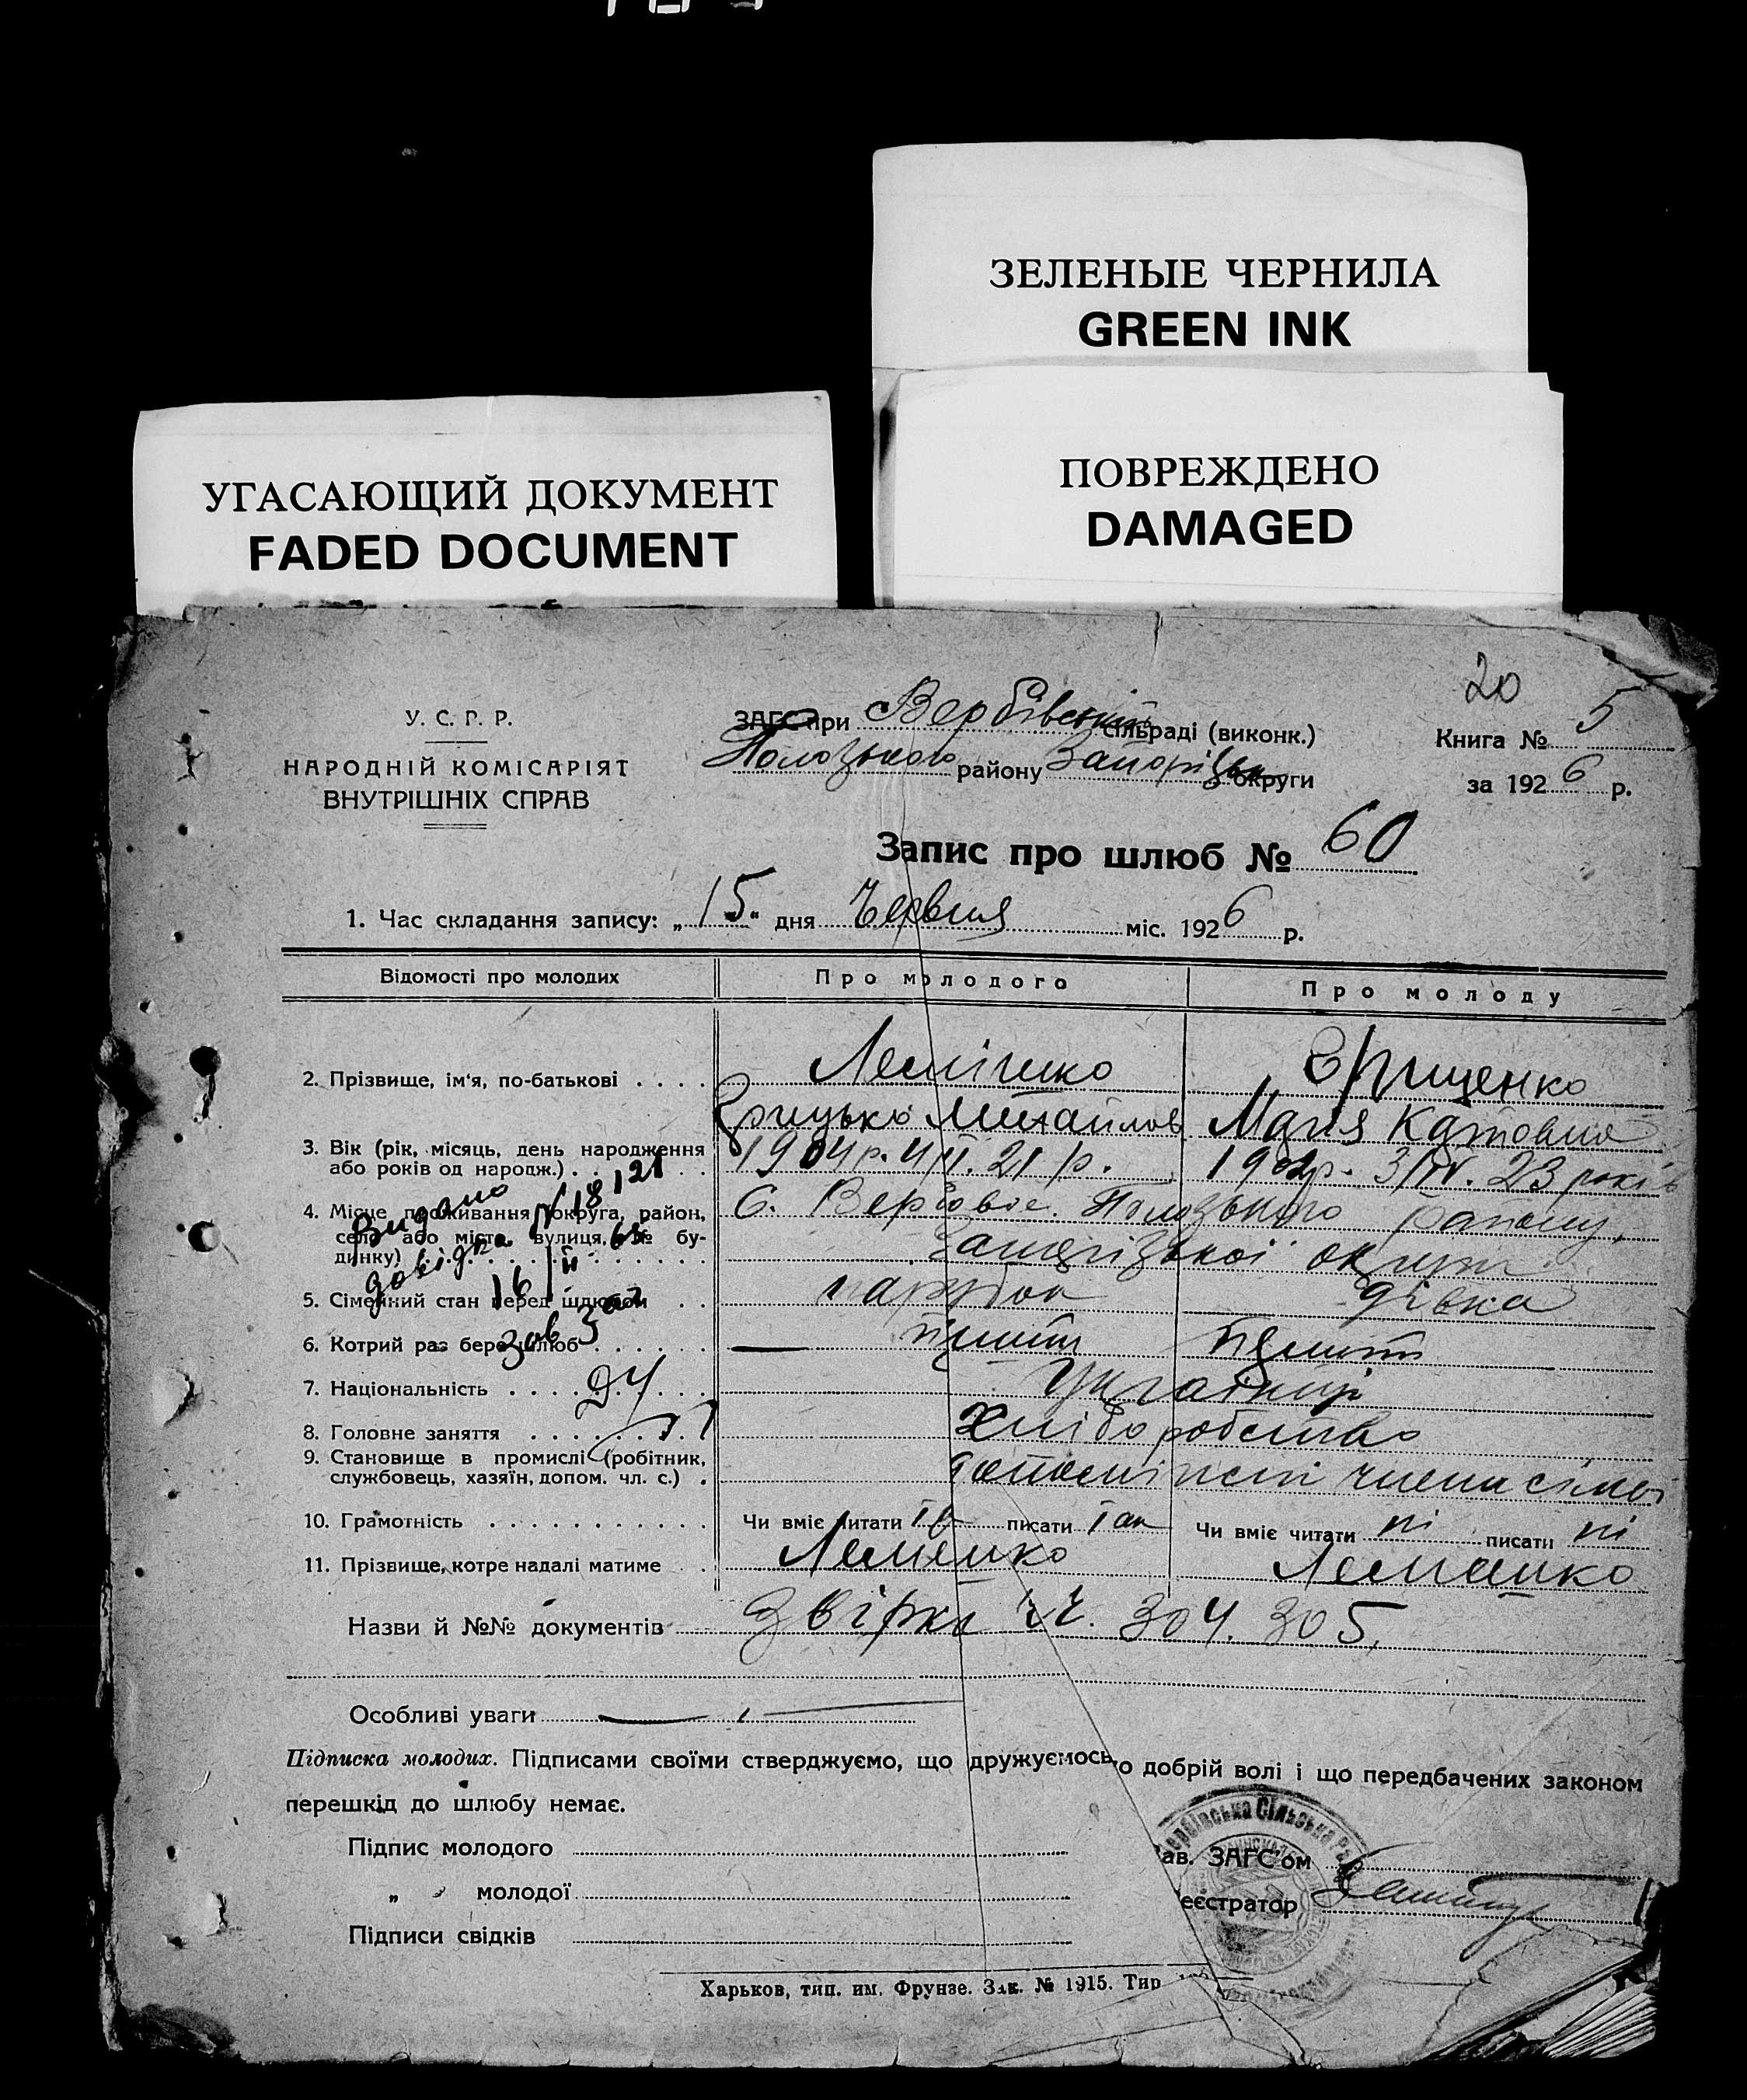 ЗЕЛЕНЫЕ ЧЕРНИЛА
GREEN INK
УГАСАЮЩИЙ ДОКУМЕНТ
FADED DOCUMENT
ПОВРЕЖДЕНО
DAMAGED
20
У. С. Р. Р.
НАРОДНІЙ КОМІСАРІЯТ
ВНУТРІШНІХ СПРАВ
ЗАГС при Вербівській сільраді (виконк.)
Пологського району Запорізьк округи
Книга № 5
за 1926 р.
Запис про шлюб № 60
1. Час складання запису: „15“ дня Червня міс. 1926 р.
Відомості про молодих Про молодого Про молоду
2. Прізвище, ім'я, по-батькові Лемішко Грищенко
Грицько Михайлов Марія
3. Вік (рік, місяць, день народження
або років од народж.) 1904р. 21 р. 23 років
4. Місце проживання (округа, район,
село або місто, вулиця, № бу-
динку) С. Вербове. Пологського району,
Запорізької округи
Видано
довідка
№ 18121
5. Сімейний стан перед шлюбом парубок дівка
6. Котрий раз бере шлюб
7. Національність Українці
8. Головне заняття Хліборобство
9. Становище в промислі (робітник,
службовець, хазяїн, допом. чл. с.) члени сімьї
10. Грамотність Чи вміє читати писати так Чи вміє читати ні писати ні
11. Прізвище, котре надалі матиме Лемішко Лемішко
Назви й №№ документів Звірка 304. 305.
Особливі уваги
Підписка молодих. Підписами своїми стверджуємо, що дружуємось о добрій волі і що передбачених законом
перешкід до шлюбу немає.
Підпис молодого
„ молодої
Підписи свідків
ав. ЗАГС'ом
еєстратор
ербівська Сільська
Харьков, тип. им. Фрунзе. Зак. № 1915. Тир